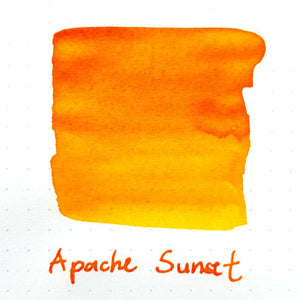 Apache Sunset